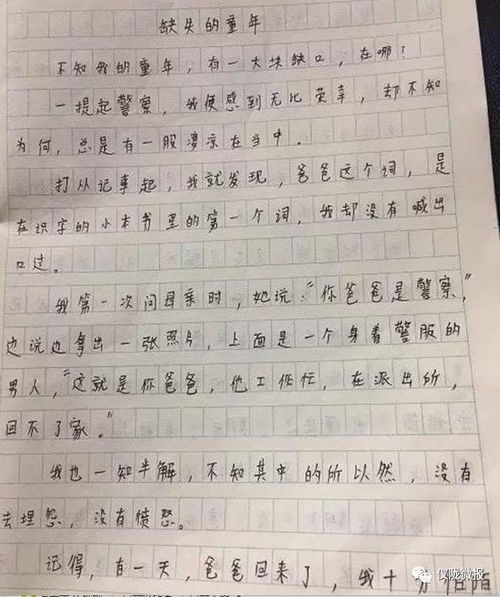 缺失的童年
不知我的童年，有一大块缺口，在哪？
一提起警察，我便感到无比荣幸，却不知
为何，总是有一股凄凉在当中。
打从记事起，我就发现，爸爸这个词，是
在识字的小本书里的第一个词，我却没有喊出
口过。
我第一次问母亲时，她说："你爸爸是警察，"
边说边拿出一张照片，上面是一个身着警服的
男人，"这就是你爸爸，他工作忙，在派出所，
回不了家。"
我也一知半解，不知其中的所以然，没有
去埋怨，没有愤怒。
记得，有一天，爸爸回来了，我十分
仪陇微报